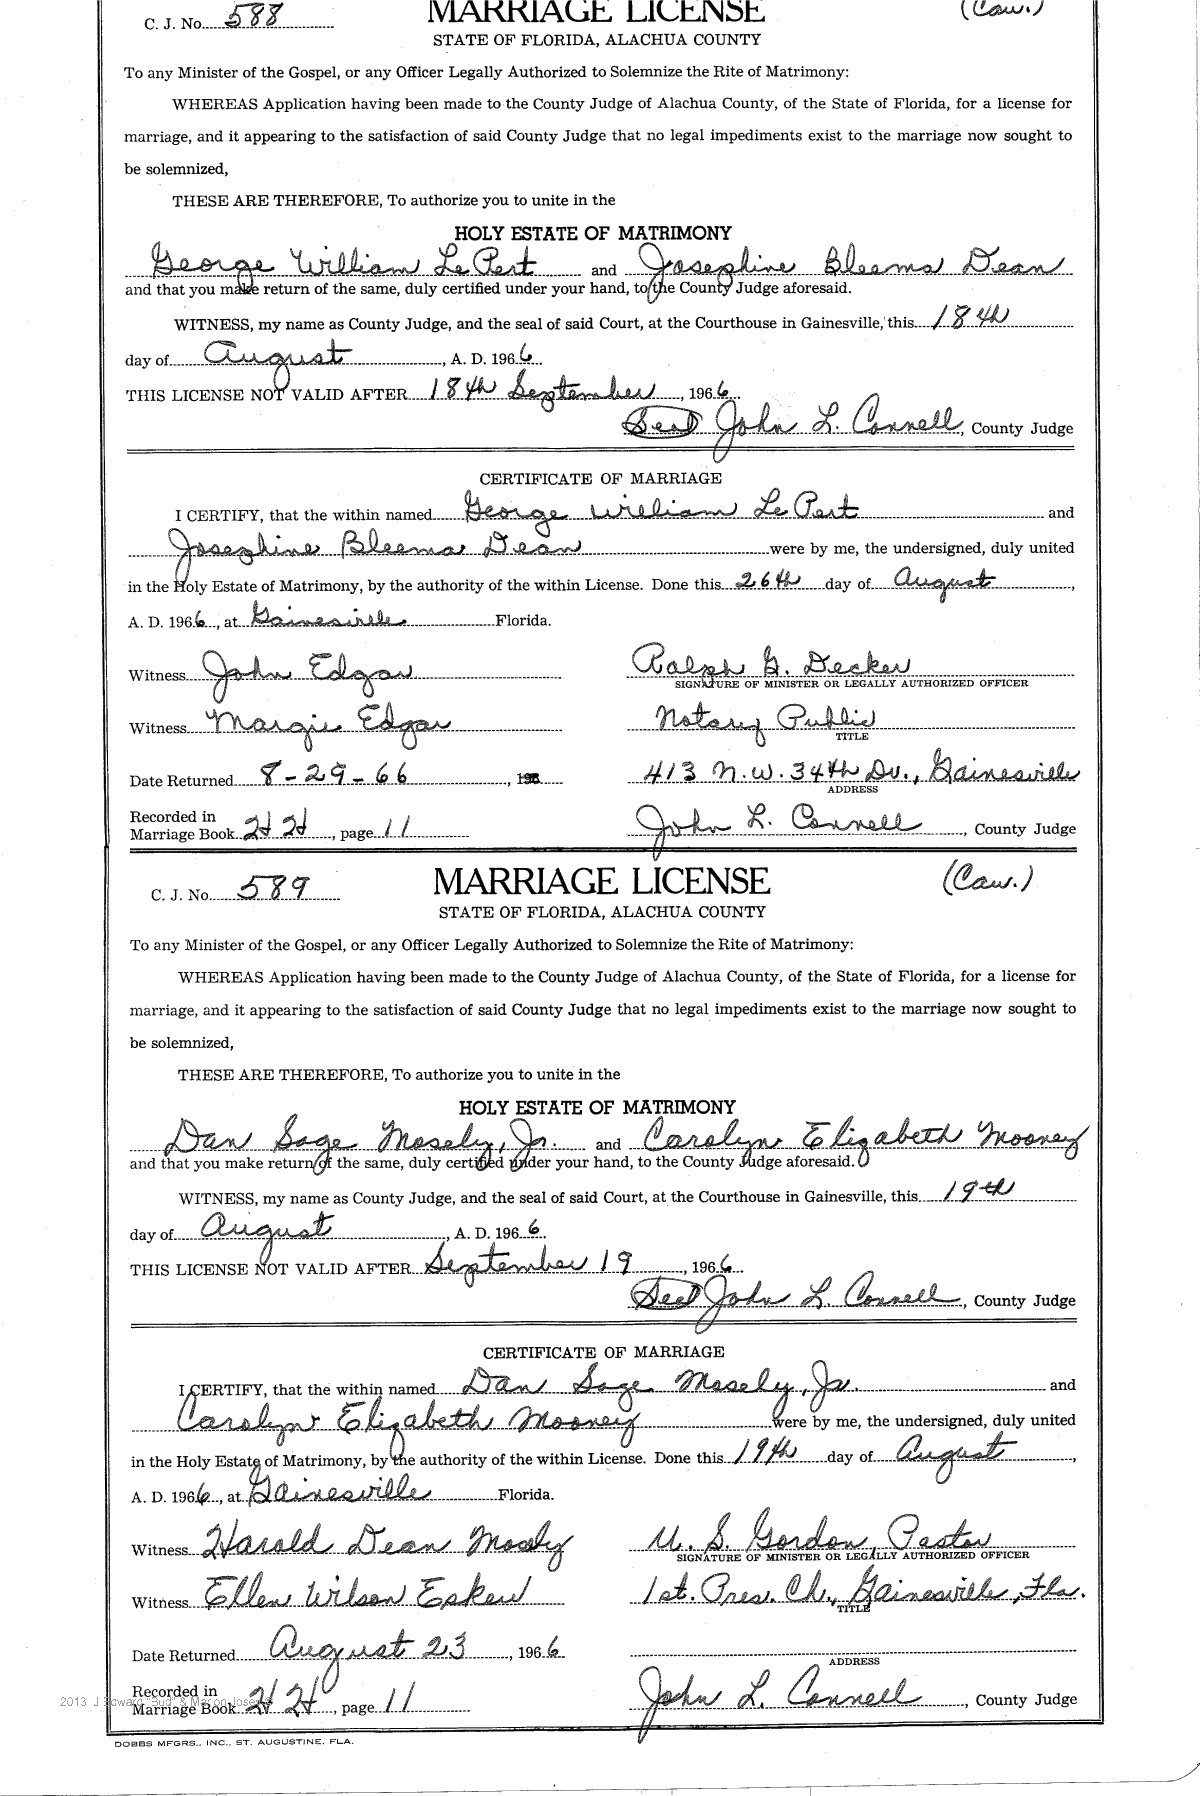 C. J. No. 588 MARRIAGE LICENSE (Caw.)
STATE OF FLORIDA, ALACHUA COUNTY
To any Minister of the Gospel, or any Officer Legally Authorized to Solemnize the Rite of Matrimony:
WHEREAS Application having been made to the County Judge of Alachua County, of the State of Florida, for a license for
marriage, and it appearing to the satisfaction of said County Judge that no legal impediments exist to the marriage now sought to
be solemnized,
THESE ARE THEREFORE, To authorize you to unite in the
HOLY ESTATE OF MATRIMONY
George William LePert and Josephine Bleema Dean
and that you make return of the same, duly certified under your hand, to the County Judge aforesaid.
WITNESS, my name as County Judge, and the seal of said Court, at the Courthouse in Gainesville, this 18th
day of August, A. D. 1966.
THIS LICENSE NOT VALID AFTER 18th September, 1966.
Seal John L. Connell, County Judge
CERTIFICATE OF MARRIAGE
I CERTIFY, that the within named George William LePert and
Josephine Bleema Dean were by me, the undersigned, duly united
in the Holy Estate of Matrimony, by the authority of the within License. Done this 26th day of August,
A. D. 1966, at Gainesville Florida.
Witness John Edgar Ralph G. Decker
SIGNATURE OF MINISTER OR LEGALLY AUTHORIZED OFFICER
Witness Margie Edgar Notary Public
TITLE
Date Returned 8-29-66, 413 N.W. 34th Dr., Gainesville
ADDRESS
Recorded in
Marriage Book, page 11 John L. Connell, County Judge
C. J. No. 589 MARRIAGE LICENSE (Caw.)
STATE OF FLORIDA, ALACHUA COUNTY
To any Minister of the Gospel, or any Officer Legally Authorized to Solemnize the Rite of Matrimony:
WHEREAS Application having been made to the County Judge of Alachua County, of the State of Florida, for a license for
marriage, and it appearing to the satisfaction of said County Judge that no legal impediments exist to the marriage now sought to
be solemnized,
THESE ARE THEREFORE, To authorize you to unite in the
HOLY ESTATE OF MATRIMONY
Dan Sage Mosely, Jr. and Carolyn Elizabeth Mooney
and that you make return of the same, duly certified under your hand, to the County Judge aforesaid.
WITNESS, my name as County Judge, and the seal of said Court, at the Courthouse in Gainesville, this 19th
day of August, A. D. 1966.
THIS LICENSE NOT VALID AFTER September 19, 1966.
Seal John L. Connell, County Judge
CERTIFICATE OF MARRIAGE
I CERTIFY, that the within named Dan Sage Mosely, Jr. and
Carolyn Elizabeth Mooney were by me, the undersigned, duly united
in the Holy Estate of Matrimony, by the authority of the within License. Done this 19th day of August,
A. D. 1966, at Gainesville Florida.
Witness Harold Dean Mosely U. S. Gordon, Pastor
SIGNATURE OF MINISTER OR LEGALLY AUTHORIZED OFFICER
Witness Ellen Wilson Eskew 1st. Pres. Ch., Gainesville, Fla.
TITLE
Date Returned August 23, 1966
ADDRESS
Recorded in
Marriage Book, page 11 John L. Connell, County Judge
DOBBS MFGRS., INC., ST. AUGUSTINE, FLA.